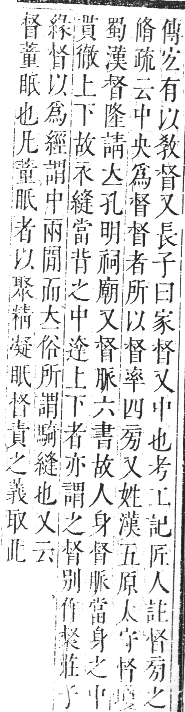 傳㝎有以敎督又長子曰家督又中也考工記匠人註督旁之
脩疏云中央爲督督者所以督率四旁又姓漢五原太守督瓊
蜀漢督隆請立孔明祠廟又督脈六書故人身督脈當身之中
貫徹上下故衣縫當背之中達上下者亦謂之督别作裻莊子
緣督以爲經謂中兩閒而立俗所謂騎縫也又云
督董眡也凡董眡者以聚精凝眡督責之義取此